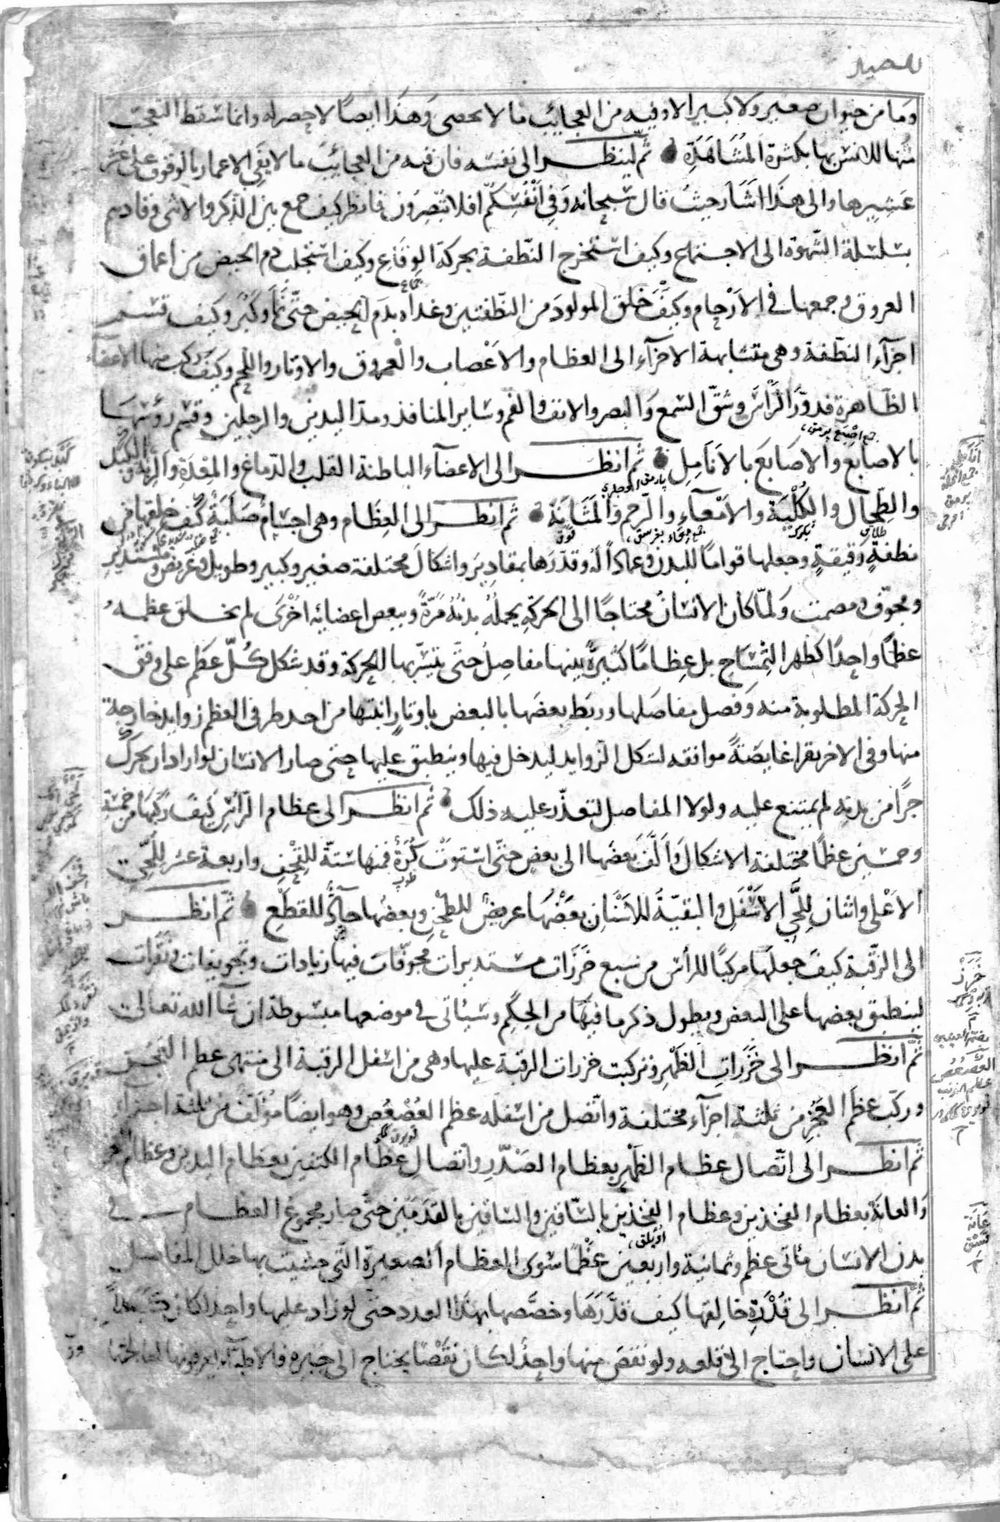 وما من حيوان صغير ولا كبير الا وفيه من العجائب ما لا يحصى وهذا ايضا لا حصر له وانما سقط التعجب
منها للانس بها بكثرة المشاهدة ثم لينظر الى نفسه فان فيه من العجائب ما لا يفي الاعمار بالوقوف على عشر
عشيرها والى هذا اشار حيث قال سبحانه وفي انفسكم افلا تبصرون فانظر كيف جمع بين الذكر والانثى وقادهم
بسلسلة الشهوة الى الاجتماع وكيف استخرج النطفة بحركة الوقاع وكيف استجلب دم الحيض من اعماق
العروق وجمعها في الارحام وكيف خلق المولود من النطفتين وغداه بدم الحيض حتى نما وكبر وكيف قسم
اجزآء النطفة وهي متشابهة الاجزآء الى العظام والاعصاب والعروق والاوتار واللحم وكيف ركب منها الاعضآء
الظاهرة فدور الرأس وشق السمع والبصر والانف والفم وساير المنافذ ومد اليدين والرجلين وقسم رؤسها
بالاصابع والاصابع بالانامل ثم انظر الى الاعضآء الباطنة القلب والدماغ والمعدة والرية والكبد
والطحال والكلية والامعآء والرحم والمثانة ثم انظر الى العظام وهي اجسام صلبة كيف خلقها من
نطفة رقيقة وجعلها قواما للبدن وعمادا له وقدرها بمقادير واشكال مختلفة صغير وكبير وطويل وعريض ومستدير
ومجوف ومصمت ولما كان الانسان محتاجا الى الحركة بجملة بدنه مرة وببعض اعضائه اخرى لم يخلق عظمه
عظما واحدا كظهر التمساح بل عظاما كثيرة بينها مفاصل حتى يتيسر بها الحركة وقد شكل كل عظم على وفق
الحركة المطلوبة منه وفصل مفاصلها وربط بعضها بالبعض باوتار انبتها من احد طرفي العظم زوايد خارجة
منها وفي الاخر نقرا غايصة موافقة لشكل الزوايد ليدخل فيها وينطبق عليها حتى صار الانسان لو اراد ان يحرك
جزا من بدنه لم يمتنع عليه ولولا المفاصل لتعذر عليه ذلك ثم انظر الى عظام الرأس كيف ركبها من خمسة
وخمسين عظما مختلفة الاشكال والف بعضها الى بعض حتى استوت كرة فمنها ستة للقحف واربعة عشر للحى
الاعلى واثنان للحى الاسفل والبقية للاسنان بعضها عريض للطحن وبعضها حآدة للقطع ثم انظر
الى الرقبة كيف جعلها مركبا للرأس من سبع خرزات مستديرات مجوفات فيها زيادات وتجويفات ونقرات
لينطبق بعضها على البعض ويطول ذكر ما فيها من الحكم وسيأتى في موضعها مبسوطة ان شآ الله تعالى
ثم انظر الى خرزات الظهر وتركبت خرزات الرقبة عليها وهي من اسفل الرقبة الى منتهى عظم العجز
وركب عظم العجز من ثلثة اجزآء مختلفة واتصل من اسفله عظم العصعص وهو ايضا مؤلف من ثلثة اجزآء
ثم انظر الى اتصال عظام الظهر بعظام الصدر واتصال عظام الكتفين بعظام اليدين وعظام العجز
والعانة بعظام الفخذين وعظام الفخذين بالساقين والساقين بالقدمين حتى صار مجموع العظام في
بدن الانسان مائتى عظم وثمانية واربعين عظما سوى العظام الصغيرة التي حشيت بها خلل المفاصل
ثم انظر الى قدرة خالقها كيف قدرها وخصصها بهذا العدد حتى لو زاد عليها واحدا لكان
على الانسان واحتاج الى قلعه ولو نقص منها واحد لكان نقصا يحتاج الى جبره فالاطبآء يعرفونها